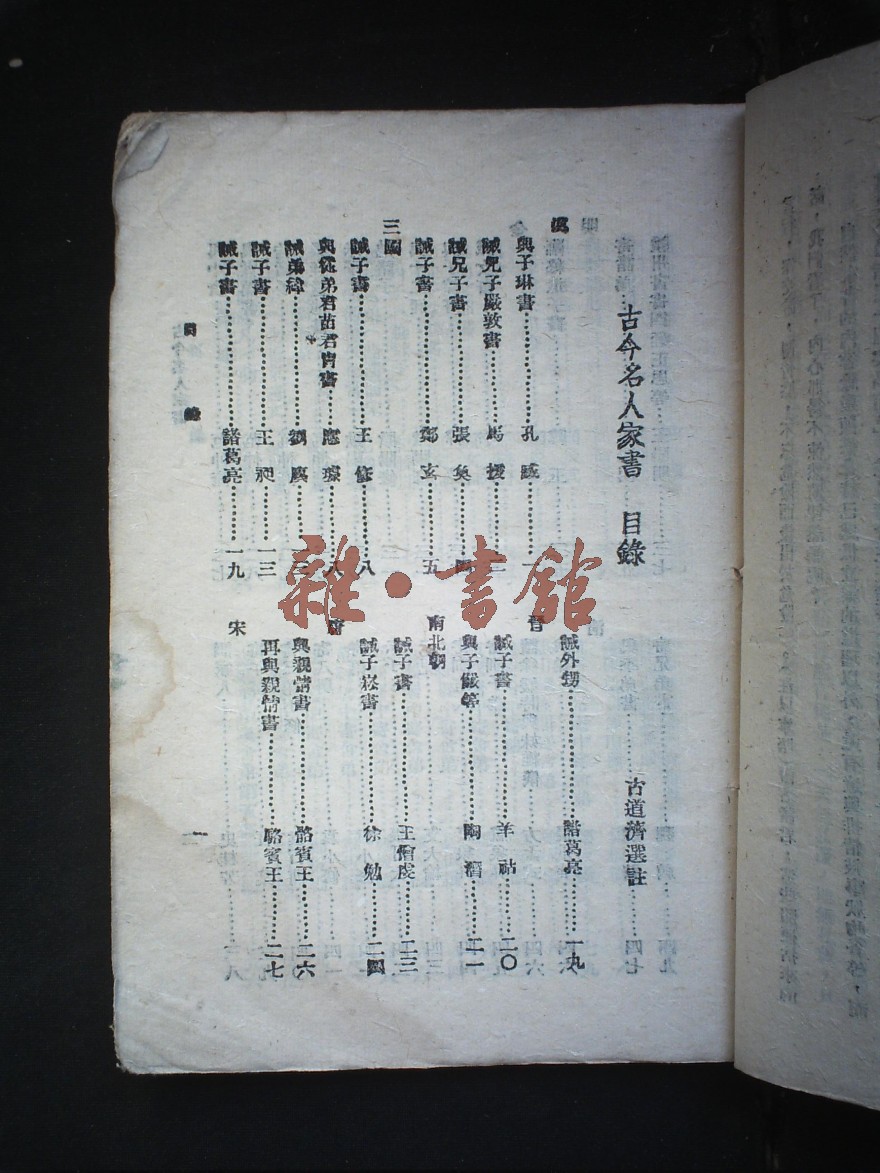 古今名人家書 目錄
古道濟選註
漢
與子琳書 孔臧 一
誡兄子嚴敦書 馬援
誡兄子書 張奐 四
誡子書 鄭玄 五
三國
誡子書 王修 八
與從弟君苗君冑書 應璩 八
誡弟緯 劉廙
誡子書 王昶 一三
誡子書 諸葛亮 一九
誡外甥 諸葛亮 一九
晉
誡子書 羊祜 二〇
與子儼等 陶潛 二一
南北朝
誡子書 王僧虔 二三
誡子崧書 徐勉 二四
唐
與親情書 駱賓王 二六
再與親情書 駱賓王 二七
宋
目錄
一
雜·書館